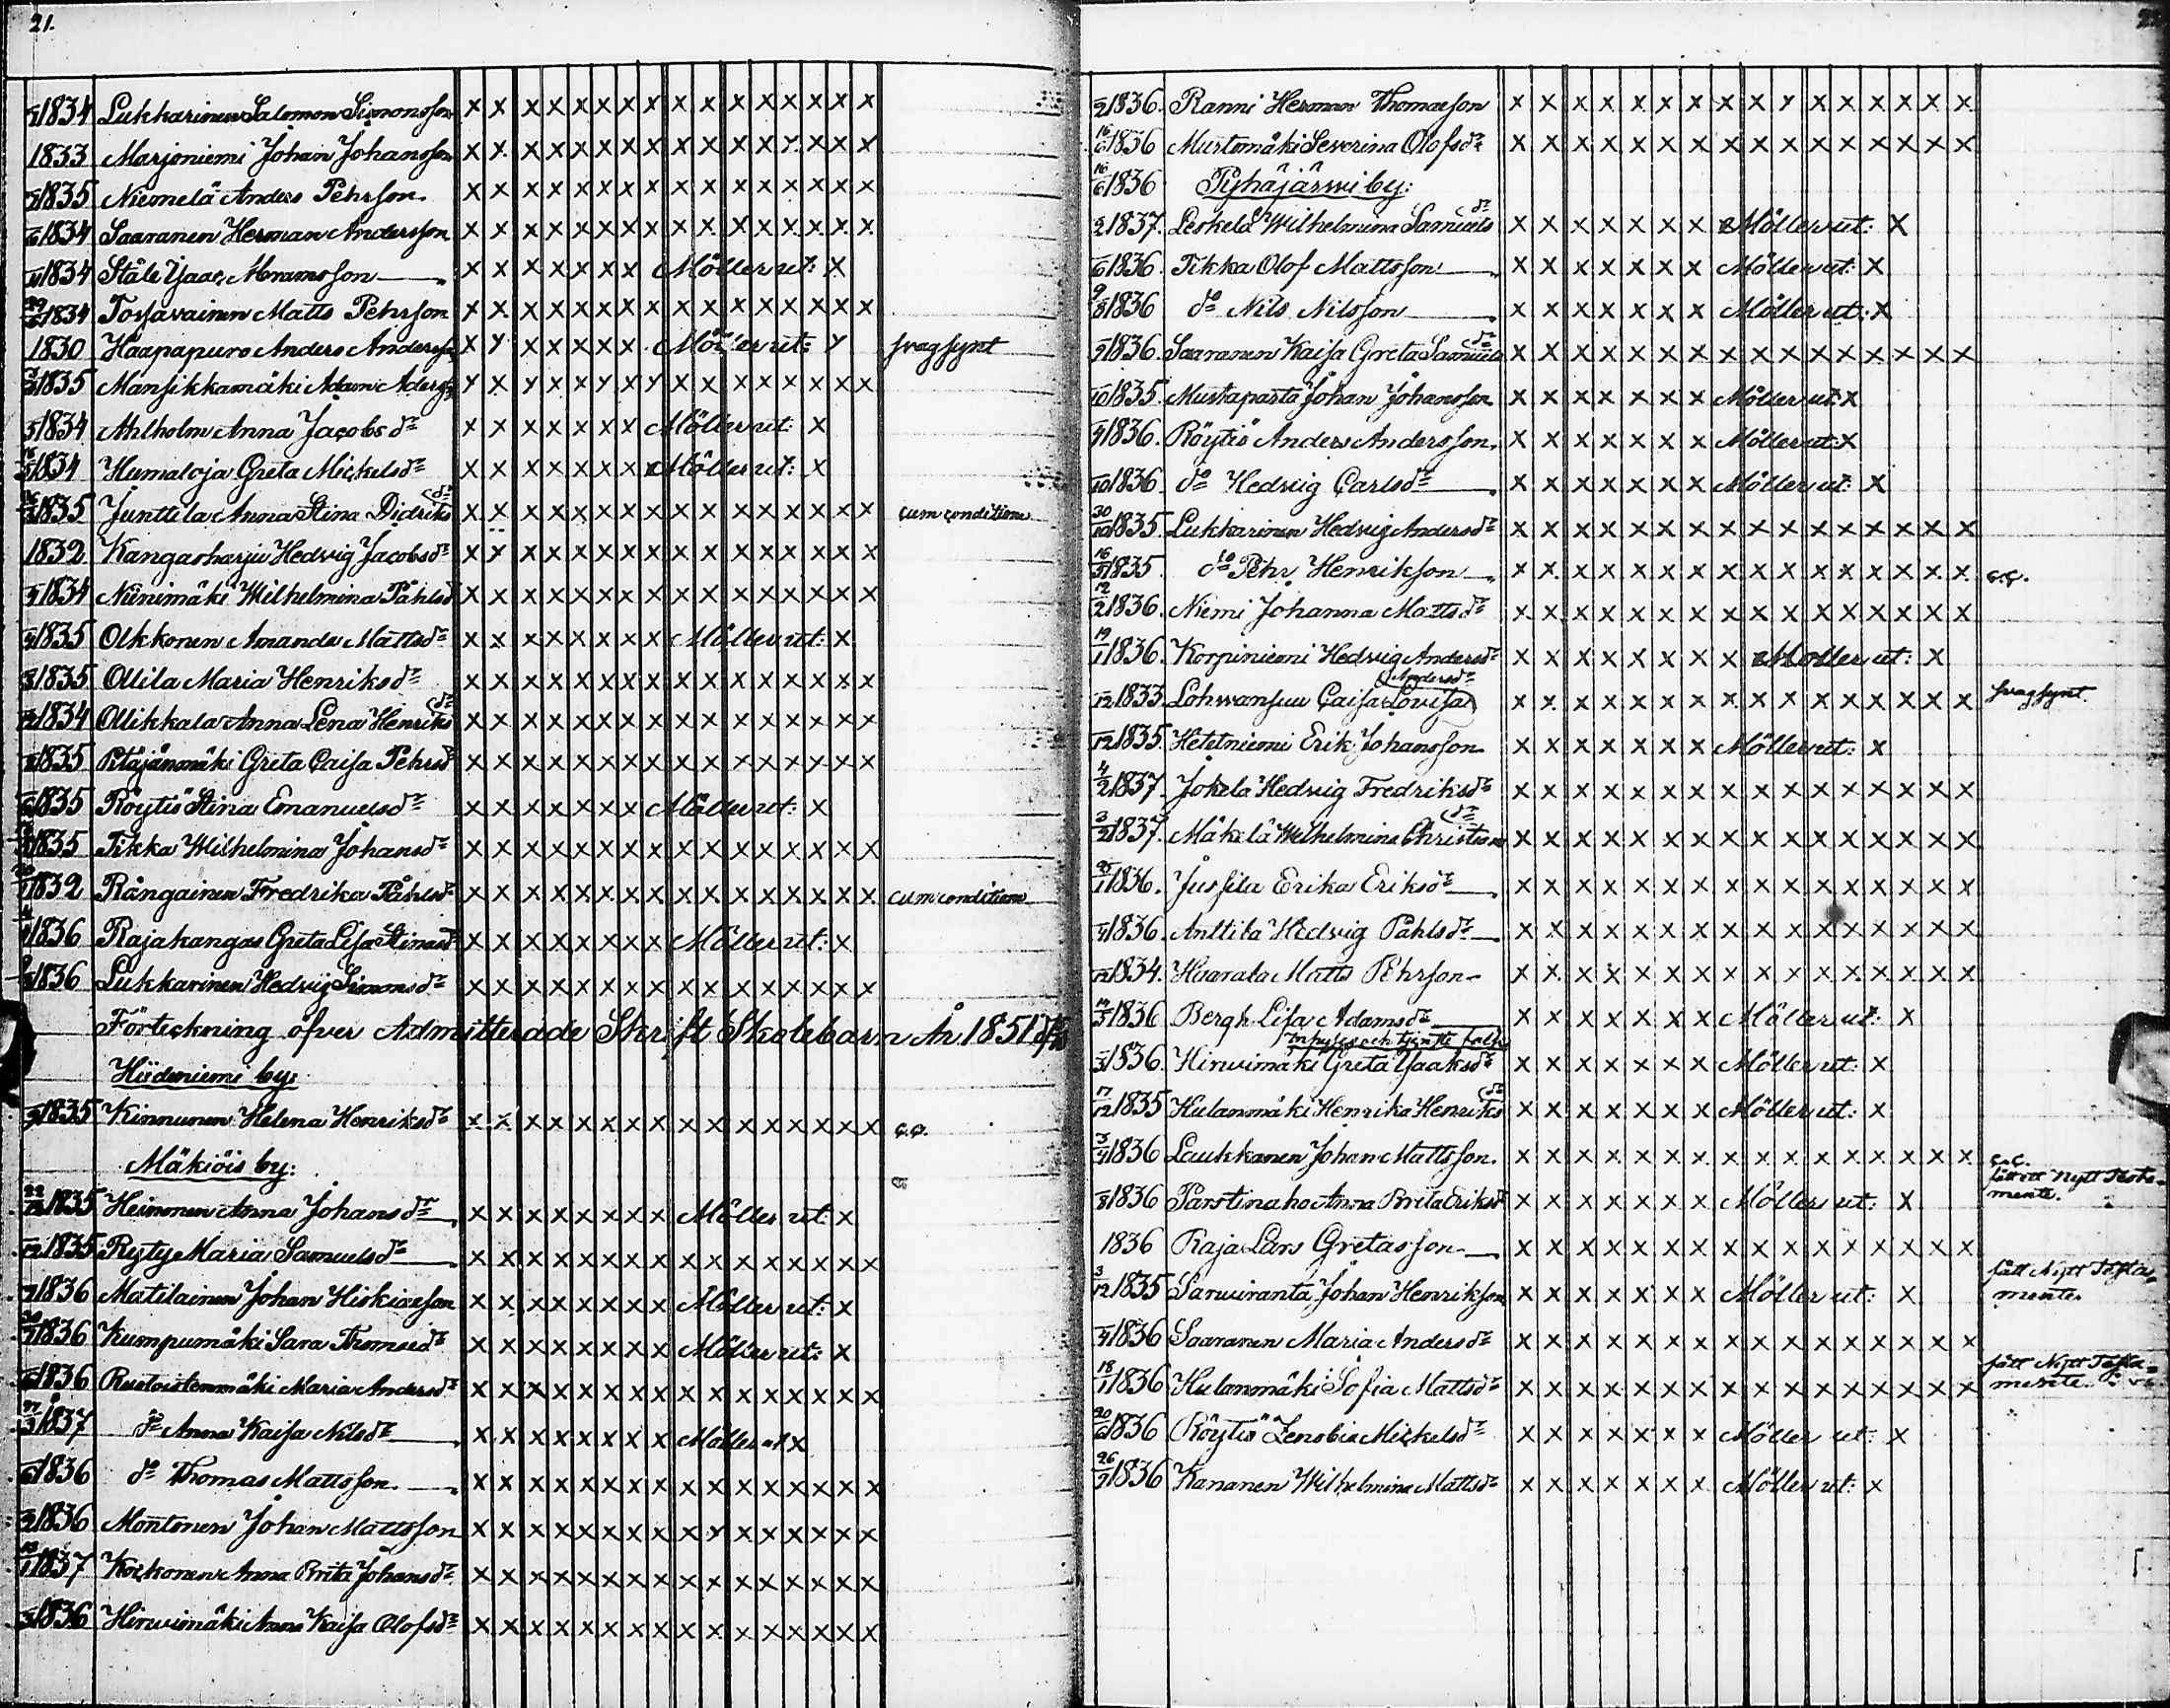 21.
1834 Lukkarinen Salomon Simonsson x x x x x x x x x x x x x x x
1833 Marjoniemi Johan Johansson x x x x x x x x x x x x x x x
1835 Niemelä Anders Pehrsson x x x x x x x x x x x x x x x
1834 Saaranen Herman Andersson x x x x x x x x x x x x x x x
1834 Ståle Isaac Abramsson x x x x x x x Möller ut: x
1834 Tossavainen Matts Pehrsson x x x x x x x x x x x x x x x
1830 Haapapuro Anders Andersson x x x x x x x Möller ut: x svagsynt
1835 Mansikkamäki Adam Adamss x x x x x x x x x x x x x x x
1834 Ahlholm Anna Jacobsdr x x x x x x x Möller ut: x
1834 Humaloja Greta Mickelsdr x x x x x x x Möller ut: x
1835 Junttila Anna Stina Didriksdr x x x x x x x x x x x x x x x cum conditione
1832 Kangasharju Hedvig Jacobsdr x x x x x x x x x x x x x x x
1834 Niinimäki Wilhelmina Påhlsd x x x x x x x x x x x x x x x
1835 Olkkonen Amanda Mattsdr x x x x x x x x Möller ut: x
1835 Ollila Maria Henriksdr x x x x x x x x x x x x x x x
1834 Ollikkala Anna Lena Henriksdr x x x x x x x x x x x x x x x
1835 Pitäjänmäki Greta Caisa Pehrsd x x x x x x x x x x x x x x x
1835 Röytiö Stina Emanuelsdr x x x x x x x Möller ut: x
1835 Tikka Wilhelmina Johansdr x x x x x x x x x x x x x x x
1832 Rångainen Fredrika Påhlsdr x x x x x x x x x x x x x x x cum conditione
1836 Rajakangas Greta Lisa Stinasdr x x x x x x x x Möller ut: x
1836 Lukkarinen Hedvig Simonsdr x x x x x x x x x x x x x x x
Förteckning öfver Admitterade Skrift Skolebarn År 1851
Hiideniemi by:
1835 Kinnunen Helena Henriksdr x x x x x x x x x x x x x x x c.c.
Mäkiöis by:
1835 Heinonen Anna Johansdr x x x x x x x x Möller ut: x
1835 Ryty Maria Samuelsdr x x x x x x x x x x x x x x x
1836 Matilainen Johan Hiskiasson x x x x x x x x Möller ut: x
1836 Kumpumäki Sara Thomasdr x x x x x x x x Möller ut: x
1836 Ruotoistenmäki Maria Andersdr x x x x x x x x x x x x x x x
1837 do Anna Kaisa Nilsdr x x x x x x x x Möller ut x
1836 do Thomas Mattsson x x x x x x x x x x x x x x x
1836 Montonen Johan Mattsson x x x x x x x x x x x x x x x
1837 Koikonen Anna Brita Johansdr x x x x x x x x x x x x x x x
1836 Hirwimäki Anna Kaisa Olofsdr x x x x x x x x x x x x x x x
1836. Ranni Herman Thomasson x x x x x x x x x x x x x x x
16/6 1836 Murtomäki Severina Olofsdr x x x x x x x x x x x x x x x
1836 Pyhäjärwi by:
1837. Leskelä Wilhelmina Samuelsdr x x x x x x x Möller ut: x
1836. Tikka Olof Mattsson x x x x x x x Möller ut: x
1836 do Nils Nilsson x x x x x x x Möller ut: x
1836. Saaranen Kaisa Greta Samuelsdr x x x x x x x x x x x x x x x
1835. Mustaparta Johan Johansson x x x x x x x Möller ut: x
1836. Röytiö Anders Andersson. x x x x x x x Möller ut: x
1836 do Hedvig Carlsdr x x x x x x x Möller ut: x
1835. Lukkarinen Hedvig Andersdr x x x x x x x x x x x x x x x
1835 do Pehr Henrikson x x x x x x x x x x x x x x x c.c.
12/2 1836. Niemi Johanna Mattsdr x x x x x x x x x x x x x x x
19/1 1836. Korpiniemi Hedvig Andersdr x x x x x x x x Möller ut: x
1833 Lohwansuu Caisa Lovisa Andersdr x x x x x x x x x x x x x x x svagsynt.
1835. Hetetniemi Erik Johansson x x x x x x x Möller ut: x
4/2 1837. Jokela Hedvig Fredriksdr x x x x x x x x x x x x x x x
3/2 1837. Mäkelä Wilhelmina Christiansdr x x x x x x x x x x x x x x x
1836. Jussila Erika Eriksdr x x x x x x x x x x x x x x x
1836 Anttila Hedvig Påhlsdr x x x x x x x x x x x x x x x
1834. Haarala Matts Pehrson x x x x x x x x x x x x x x x
1836 Bergh Lisa Adamsdr x x x x x x x Möller ut: x
Inhyses och tjenste folk
1836. Hirwimäki Greta Isaaksdr x x x x x x x Möller ut: x
17/12 1835 Hulanmäki Henrika Henriksdr x x x x x x x Möller ut: x
1836 Laukkanen Johan Mattsson. x x x x x x x x x x x x x x x c.c.
fått ett Nytt Testamente.
1836 Parstinaho Anna Brita Eriksdr x x x x x x x Möller ut: x
1836 Raja Lars Gretasson x x x x x x x x x x x x x x x
3/12 1835 Sarwiranta Johan Henrikson x x x x x x x Möller ut: x fått Nytt Testamente.
1836 Saaranen Maria Andersdr x x x x x x x x x x x x x x x
18/11 1836 Hulanmäki Sofia Mattsdr x x x x x x x x x x x x x x x fått Nytt Testamente.
1836 Röytiö Zenobia Mickelsdr x x x x x x x Möller ut: x
1836 Kananen Wilhelmina Mattsdr x x x x x x x Möller ut: x